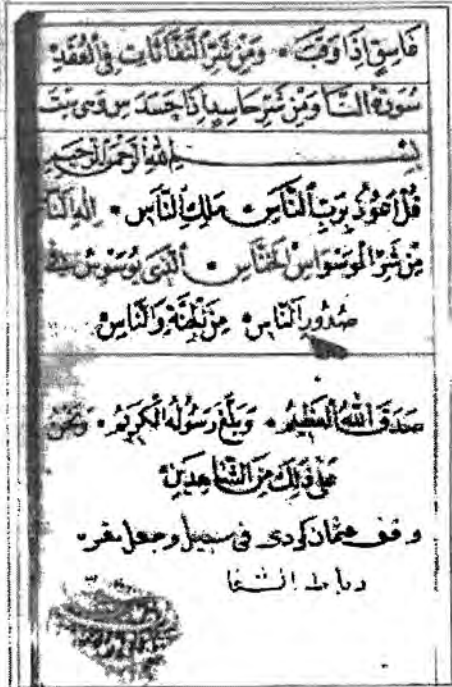 غَاسِقٍ إِذَا وَقَبَ • وَمِنْ شَرِّ النَّفَّاثَاتِ فِي الْعُقَدِ
سُورَةُ النَّاسِ وَمِنْ شَرِّ حَاسِدٍ إِذَا حَسَدَ
بِسْمِ اللّٰهِ الرَّحْمٰنِ الرَّحِيمِ
قُلْ أَعُوذُ بِرَبِّ النَّاسِ • مَلِكِ النَّاسِ • إِلٰهِ النَّاسِ
مِنْ شَرِّ الْوَسْوَاسِ الْخَنَّاسِ • الَّذِي يُوَسْوِسُ فِي
صُدُورِ النَّاسِ • مِنَ الْجِنَّةِ وَالنَّاسِ
صَدَقَ اللّٰهُ الْعَظِيمُ • وَبَلَّغَ رَسُولُهُ الْكَرِيمُ • وَنَحْنُ
عَلَى ذٰلِكَ مِنَ الشَّاهِدِينَ
وقف عثمان كردى فى سبيل وجعل مقر
رباط